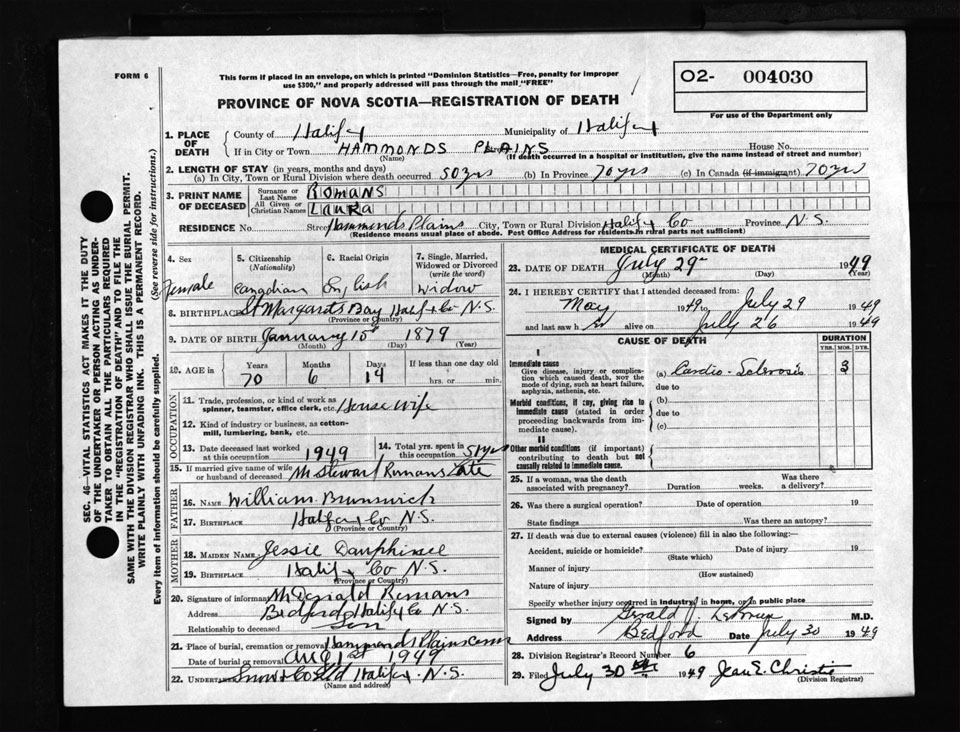 FORM 6
This form if placed in an envelope, on which is printed "Dominion Statistics—Free, penalty for improper
use $300," and properly addressed will pass through the mail "FREE"
O2- 004030
For use of the Department only
PROVINCE OF NOVA SCOTIA—REGISTRATION OF DEATH
1. PLACE OF DEATH
County of Halifax Municipality of Halifax
If in City or Town HAMMONDS PLAINS House No.
(Name) (If death occurred in a hospital or institution, give the name instead of street and number)
2. LENGTH OF STAY (in years, months and days)
(a) In City, Town or Rural Division where death occurred 50 yrs (b) In Province 70 yrs (c) In Canada (if immigrant) 70 yrs
3. PRINT NAME OF DECEASED
Surname or Last Name ROMANS
All Given or Christian Names LAURA
RESIDENCE No. Street Hammonds Plains City, Town or Rural Division Halifax Co Province N.S.
(Residence means usual place of abode. Post Office Address for residents in rural parts not sufficient)
4. Sex
Female
5. Citizenship
(Nationality)
Canadian
6. Racial Origin
English
7. Single, Married, Widowed or Divorced
(write the word)
Widow
8. BIRTHPLACE St Margarets Bay Halifax Co N.S.
(Province or Country)
9. DATE OF BIRTH January 15 1879
(Month) (Day) (Year)
10. AGE in Years Months Days If less than one day old
70 6 14 hrs. or min.
OCCUPATION
11. Trade, profession, or kind of work as
spinner, teamster, office clerk, etc. House Wife
12. Kind of industry or business, as cotton-
mill, lumbering, bank, etc.
13. Date deceased last worked
at this occupation 1949
14. Total yrs. spent in
this occupation 51 yrs
15. If married give name of wife
or husband of deceased M Stewart Romans Late
FATHER
16. NAME William Brunswick
17. BIRTHPLACE Halifax Co N.S.
(Province or Country)
MOTHER
18. MAIDEN NAME Jessie Dauphinee
19. BIRTHPLACE Halifax Co N.S.
(Province or Country)
20. Signature of informant Romans
Address Bedford Halifax Co N.S.
Relationship to deceased Son
21. Place of burial, cremation or removal Hammond Plains Cem
Date of burial or removal Aug 1st 1949
22. UNDERTAKER Snow & Co Ltd Halifax N.S.
(Name and address)
MEDICAL CERTIFICATE OF DEATH
23. DATE OF DEATH July 29 1949
(Month) (Day) (Year)
24. I HEREBY CERTIFY that I attended deceased from:
May 1949 to July 29 1949
and last saw h alive on July 26 1949
CAUSE OF DEATH
DURATION
YRS. MOS. DYS.
I
Immediate cause
Give disease, injury or complica-
tion which caused death, NOT the
mode of dying, such as heart failure,
asphyxia, asthenia, etc.
(a) Cardio-Sclerosis 3
due to
Morbid conditions, if any, giving rise to
immediate cause (stated in order
proceeding backwards from im-
mediate cause).
(b)
due to
(c)
II
Other morbid conditions (if important)
contributing to death but not
causally related to immediate cause.
25. If a woman, was the death
associated with pregnancy? Duration weeks. Was there
a delivery?
26. Was there a surgical operation? Date of operation 19
State findings Was there an autopsy?
27. If death was due to external causes (violence) fill in also the following:—
Accident, suicide or homicide? Date of injury 19
(State which)
Manner of injury
(How sustained)
Nature of injury
Specify whether injury occurred in industry, in home, or in public place
Signed by Gerald J. M.D.
Address Bedford Date July 30 1949
28. Division Registrar's Record Number 6
29. Filed July 30th 1949 Jean E. Christie
(Division Registrar)
SEC. 46—VITAL STATISTICS ACT MAKES IT THE DUTY
OF THE UNDERTAKER OR PERSON ACTING AS UNDER-
TAKER TO OBTAIN ALL THE PARTICULARS REQUIRED
IN THE "REGISTRATION OF DEATH" AND TO FILE THE
SAME WITH THE DIVISION REGISTRAR WHO SHALL ISSUE THE BURIAL PERMIT.
WRITE PLAINLY WITH UNFADING INK. THIS IS A PERMANENT RECORD.
Every item of information should be carefully supplied. (See reverse side for instructions.)